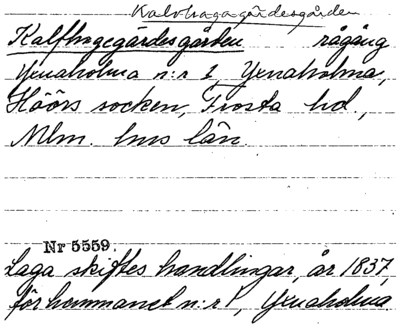 Kalvhagagärdesgården
Kalfhagegärdesgården rågång
Yxnaholma n:r 1, Yxnaholma,
Höörs socken, Frosta hd.,
Mlm. hus län.
Nr 5559.
Laga skiftes handlingar, år 1837,
för hemmanet n:r 1, Yxnaholma.